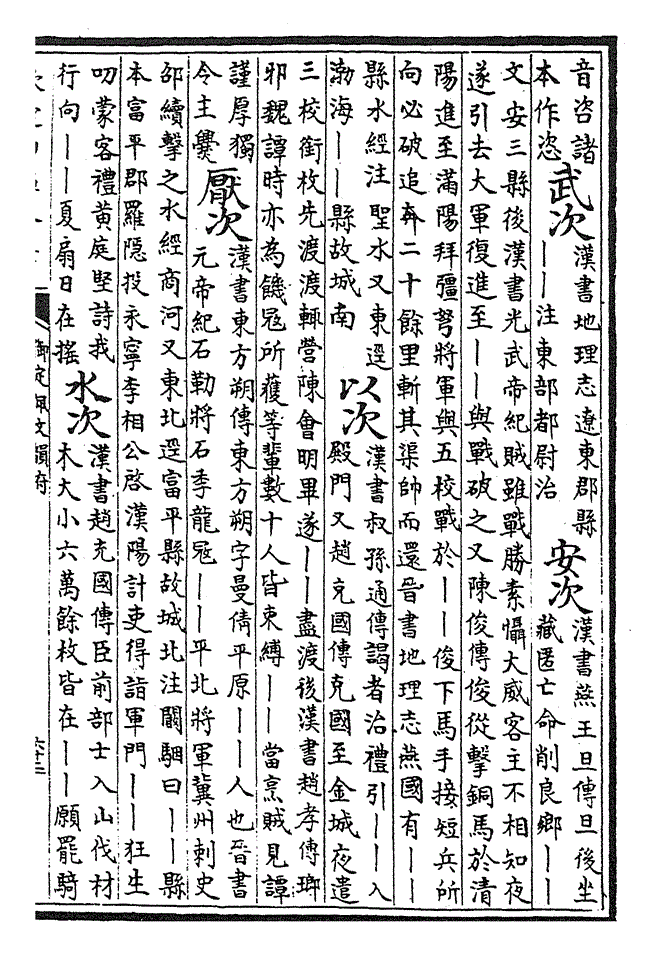 音咨諸
本作恣
武次
漢書地理志遼東郡縣
——注東部都尉治
安次
漢書燕王旦傳旦後坐
藏匿亡命削良鄉——
文安三縣後漢書光武帝紀賊雖戰勝素懾大威客主不相知夜
遂引去大軍復進至——與戰破之又陳俊傳俊從擊銅馬於清
陽進至滿陽拜彊弩將軍與五校戰於——俊下馬手接短兵所
向必破追奔二十餘里斬其渠帥而還晉書地理志燕國有——
縣水經注聖水又東逕
渤海——縣故城南
以次
漢書叔孫通傳謁者治禮引——入
殿門又趙充國傳充國至金城夜遣
三校銜枚先渡渡輒營陳會明畢遂——盡渡後漢書趙孝傳瑯
邪魏譚時亦為饑寇所獲等輩數十人皆束縛——當烹賊見譚
謹厚獨
令主爨
厭次
漢書東方朔傳東方朔字曼倩平原——人也晉書
元帝紀石勒將石季龍寇——平北將軍冀州刺史
邵續擊之水經商河又東北逕富平縣故城北注闞駰曰——縣
本富平郡羅隱投永寧李相公啓漢陽計吏得詣軍門——狂生
叨蒙客禮黄庭堅詩我
行向——夏扇日在搖
水次
漢書趙充國傳臣前部士入山伐材
木大小六萬餘枚皆在——願罷騎
御定佩文韻府